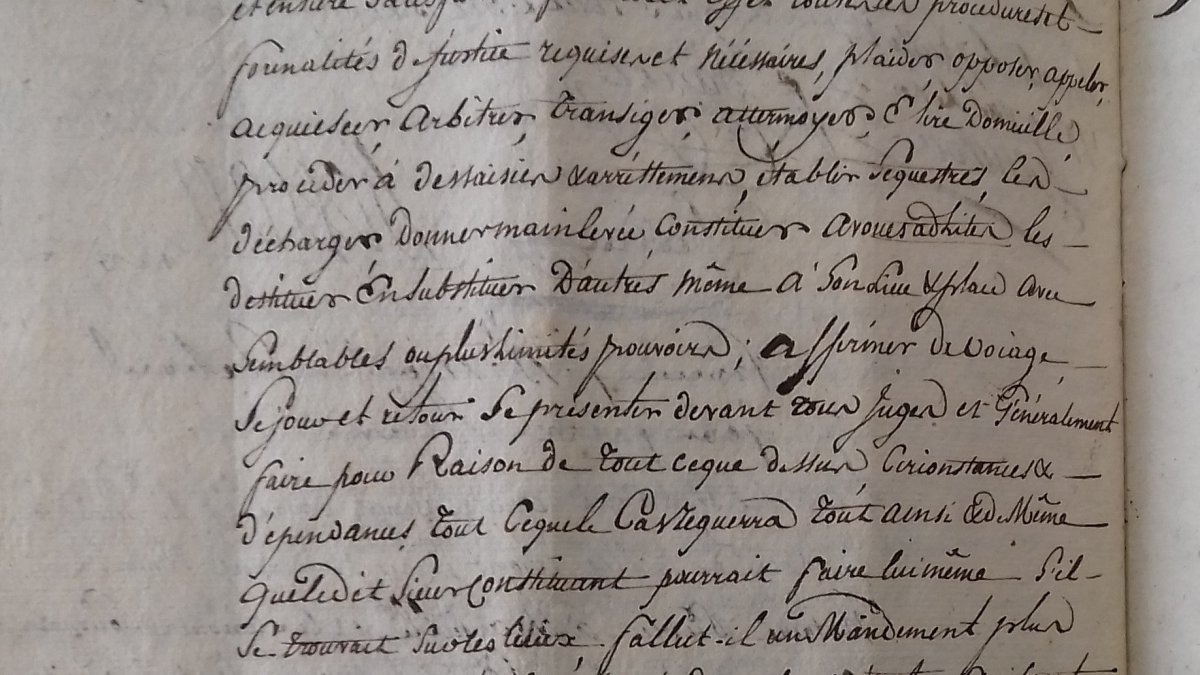 et entière satisfa procédures et
formalités de justice requises et nécéssaires, plaider, opposer, appeler,
acquiescer, arbitrer, transiger, attermoyer, Elire Domicille,
procéder à dessaisies & arréttemens, établir Séquestrés, les
décharger, Donner mainlevée, Constituer avoués adlites, les
destituer, En substituer D'autrés même à Son Lieu & place avec
Semblables ou plus limités pouvoirs ; affirmer de voiage,
Séjour et retour Se présenter devant tous Juges et Généralement
faire pour Raison de tout ceque dessus, Circonstances &
dépendances, tout Ceque le Cas requerra tout ainsi & de Même
que ledit Sieur Constituant pourrait faire lui même S'il
Se trouvait Sur les lieux, fallut-il un Mandement plus